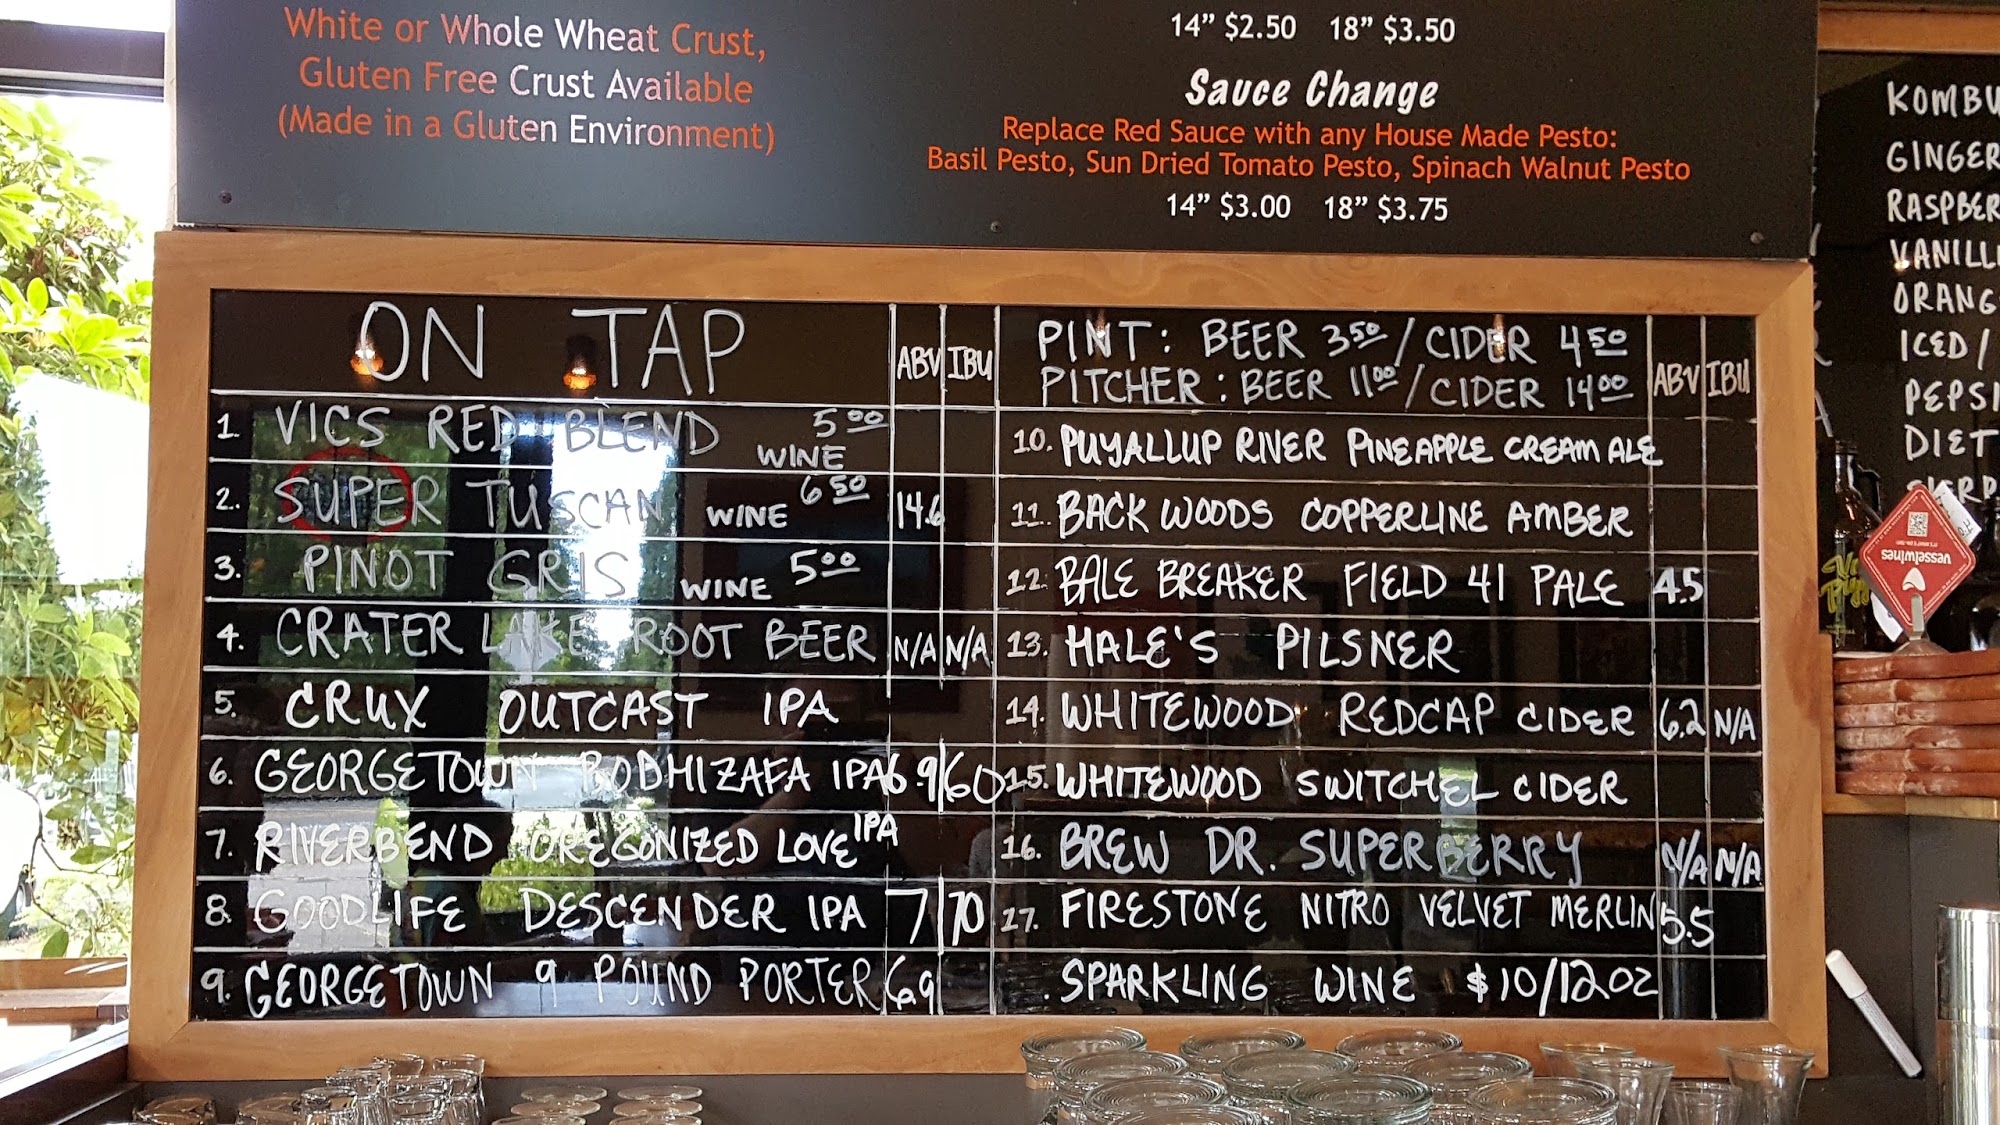 White or Whole Wheat Crust,
Gluten Free Crust Available
(Made in a Gluten Environment)
14” $2.50 18” $3.50
Sauce Change
Replace Red Sauce with any House Made Pesto:
Basil Pesto, Sun Dried Tomato Pesto, Spinach Walnut Pesto
14” $3.00 18” $3.75
ON TAP ABV IBU
1. VICS RED BLEND WINE 5.00
2. SUPER TUSCAN WINE 6.50 14.6
3. PINOT GRIS WINE 5.00
4. CRATER LAKE ROOT BEER N/A N/A
5. CRUX OUTCAST IPA
6. GEORGETOWN BODHIZAFA IPA 6.9 60
7. RIVERBEND OREGONIZED LOVE IPA
8. GOODLIFE DESCENDER IPA 7 70
9. GEORGETOWN 9 POUND PORTER 6.9
PINT: BEER 3.50 / CIDER 4.50
PITCHER: BEER 11.00 / CIDER 14.00
ABV IBU
10. PUYALLUP RIVER PINEAPPLE CREAM ALE
11. BACKWOODS COPPERLINE AMBER
12. BALE BREAKER FIELD 41 PALE 4.5
13. HALE'S PILSNER
14. WHITEWOOD REDCAP CIDER 6.2 N/A
15. WHITEWOOD SWITCHEL CIDER
16. BREW DR. SUPERBERRY N/A N/A
17. FIRESTONE NITRO VELVET MERLIN 5.5
. SPARKLING WINE $10/12OZ
KOMBU
GINGER
RASPBER
VANILL
ORANG
ICED/
PEPSI
DIET
vesselwines